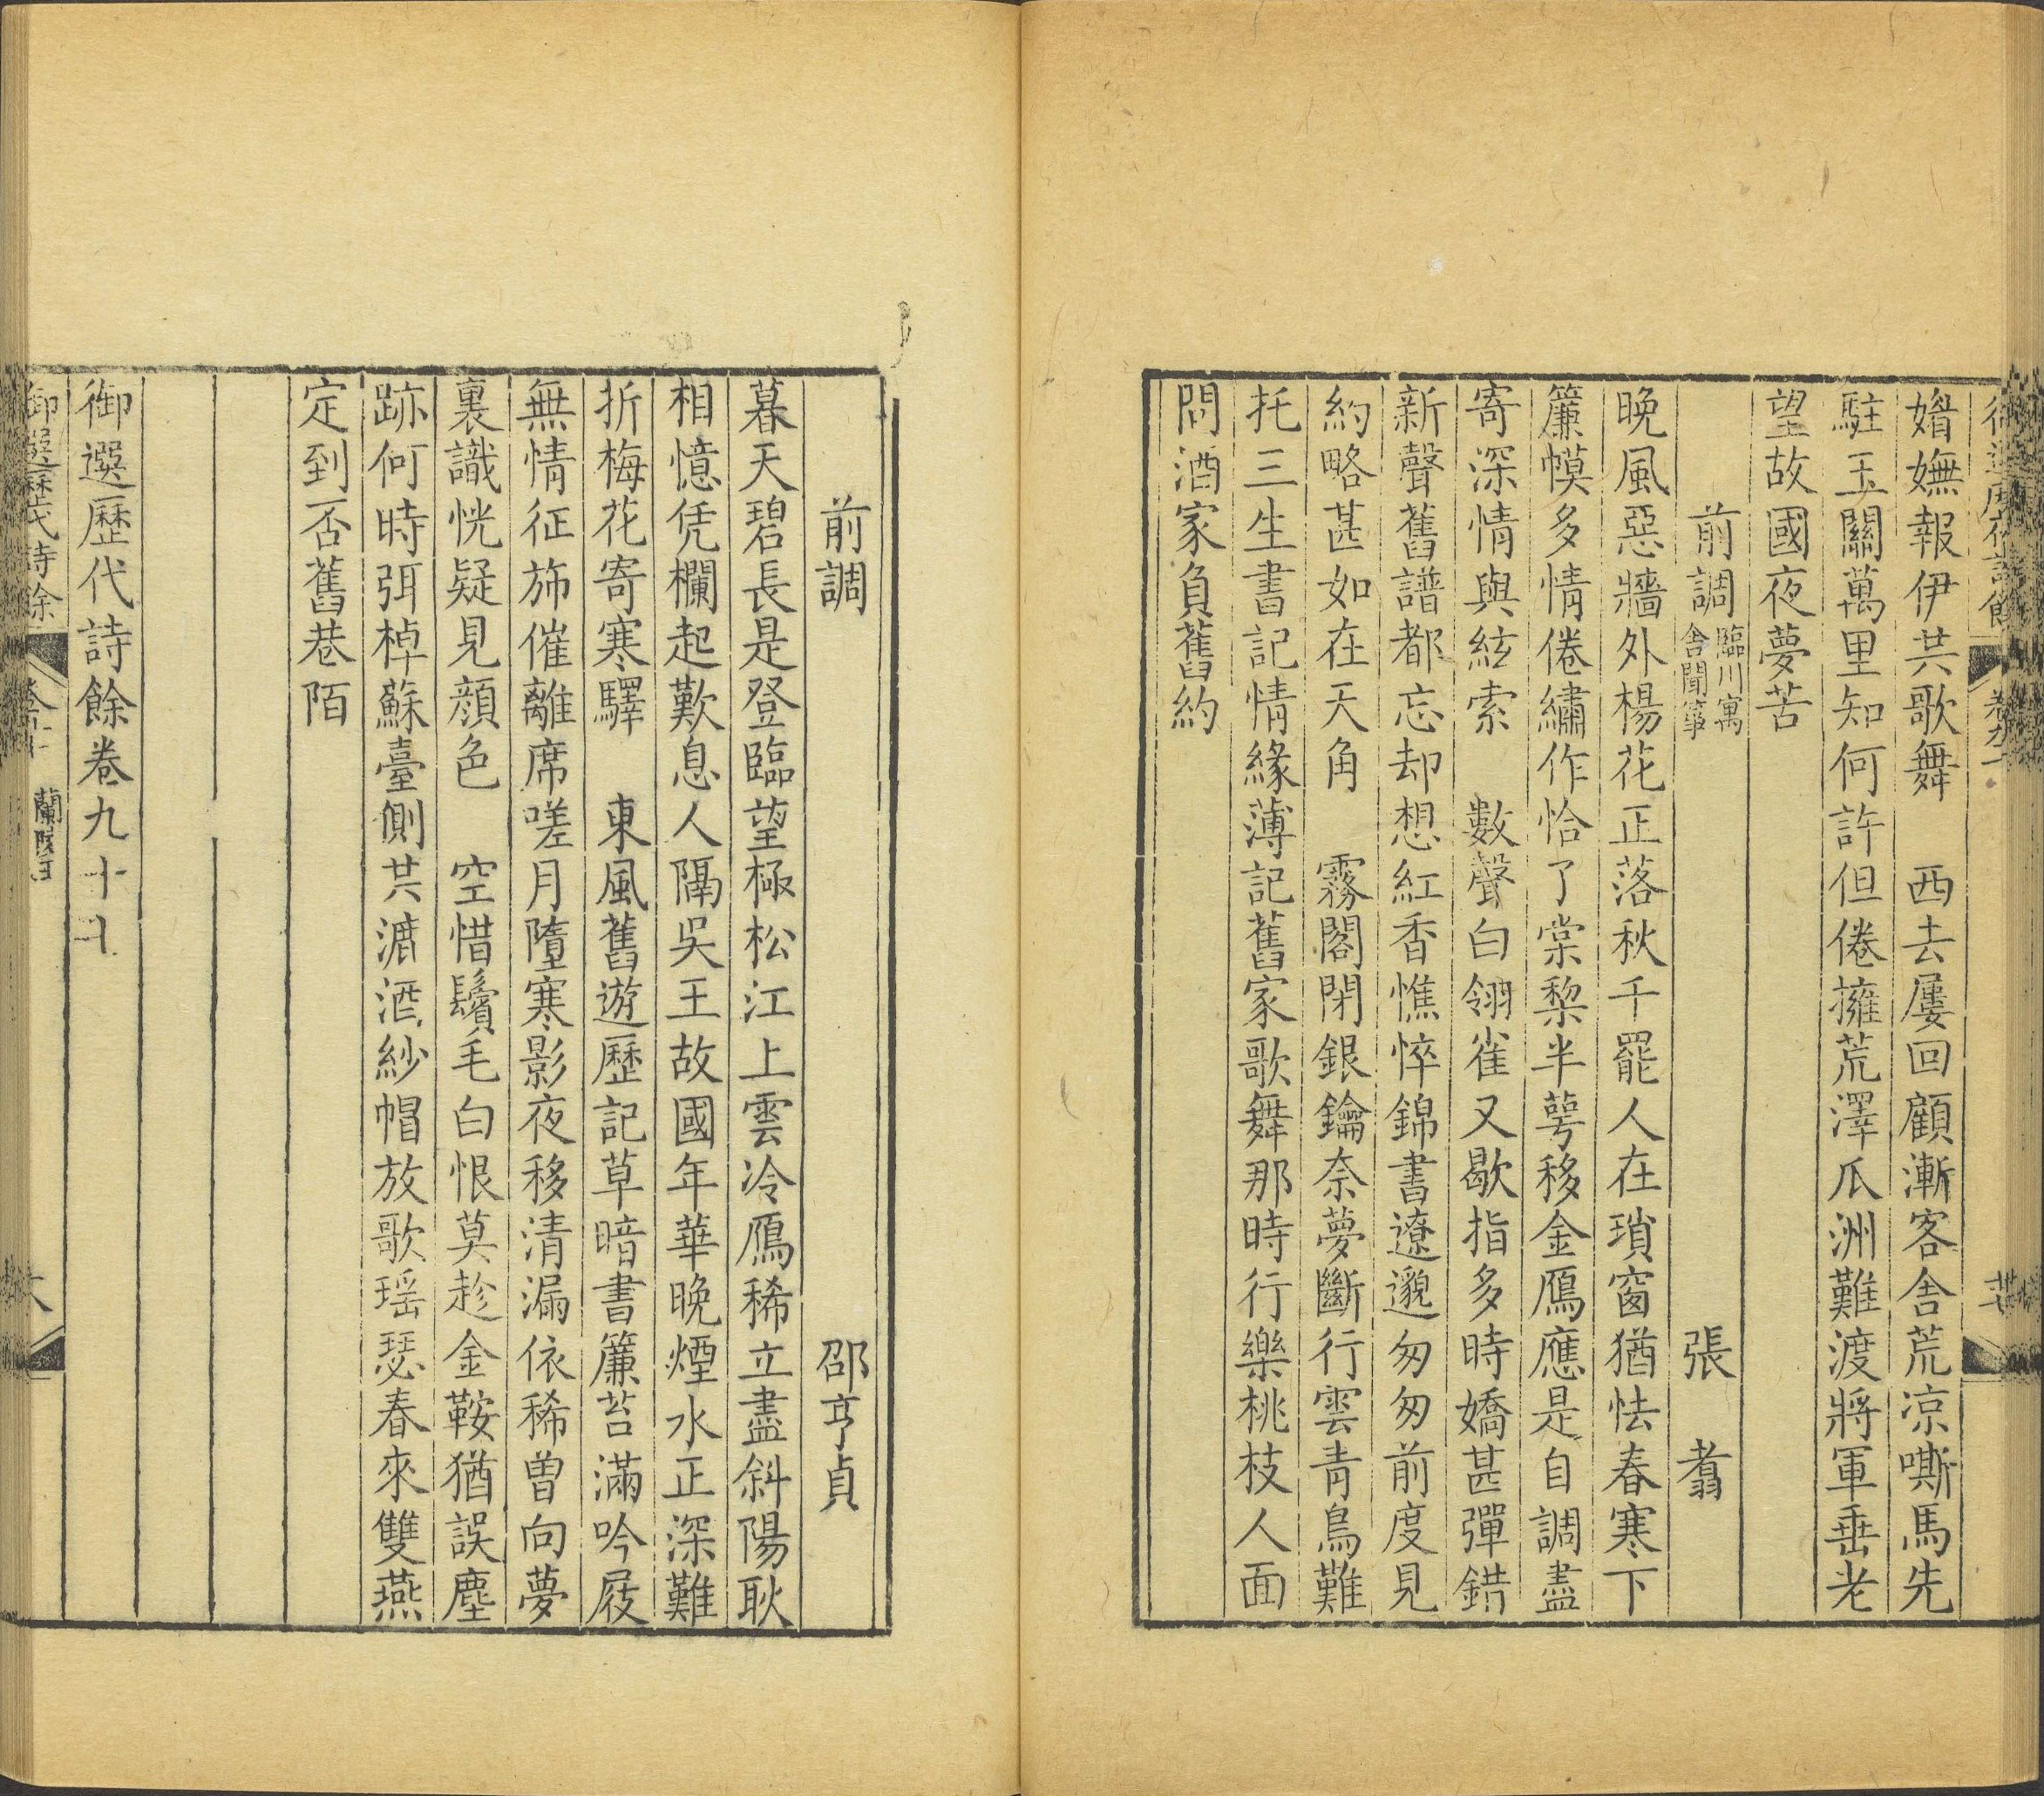 婚嫵報伊共歌舞　西去屢回顧漸客舍荒凉嘶馬先
駐玉關萬里知何許但倦擁荒澤瓜洲難渡將軍垂老
望故國夜夢苦
前調　臨川寓舍聞箏　張翥
晚風惡牆外楊花正落秋千罷人在瑣窗猶怯春寒下
簾幙多情倦繡作恰了棠棃半萼移金鴈應是自調盡
寄深情與絃索　數聲白翎雀又歇指多時嬌甚彈錯
新聲舊譜都忘却想紅香憔悴錦書遼邈匆匆前度見
約略甚如在天角　霧閣閉銀鑰奈夢斷行雲青鳥難
托三生書記情緣薄記舊家歌舞那時行樂桃枝人面
問酒家負舊約
前調　邵亨貞
暮天碧長是登臨望極松江上雲冷鴈稀立盡斜陽耿
相憶凭欄起歎息人隔吳王故國年華晚煙水正深難
折梅花寄寒驛　東風舊遊歷記草暗書簾苔滿吟屐
無情征斾催離席嗟月墮寒影夜移清漏依稀曾向夢
裏識恍疑見顔色　空惜鬢毛白恨莫趂金鞍猶誤塵
跡何時弭棹蘇臺側共漉酒紗帽放歌瑶瑟春來雙燕
定到否舊巷陌
御選歷代詩餘卷九十
御選歷代詩餘